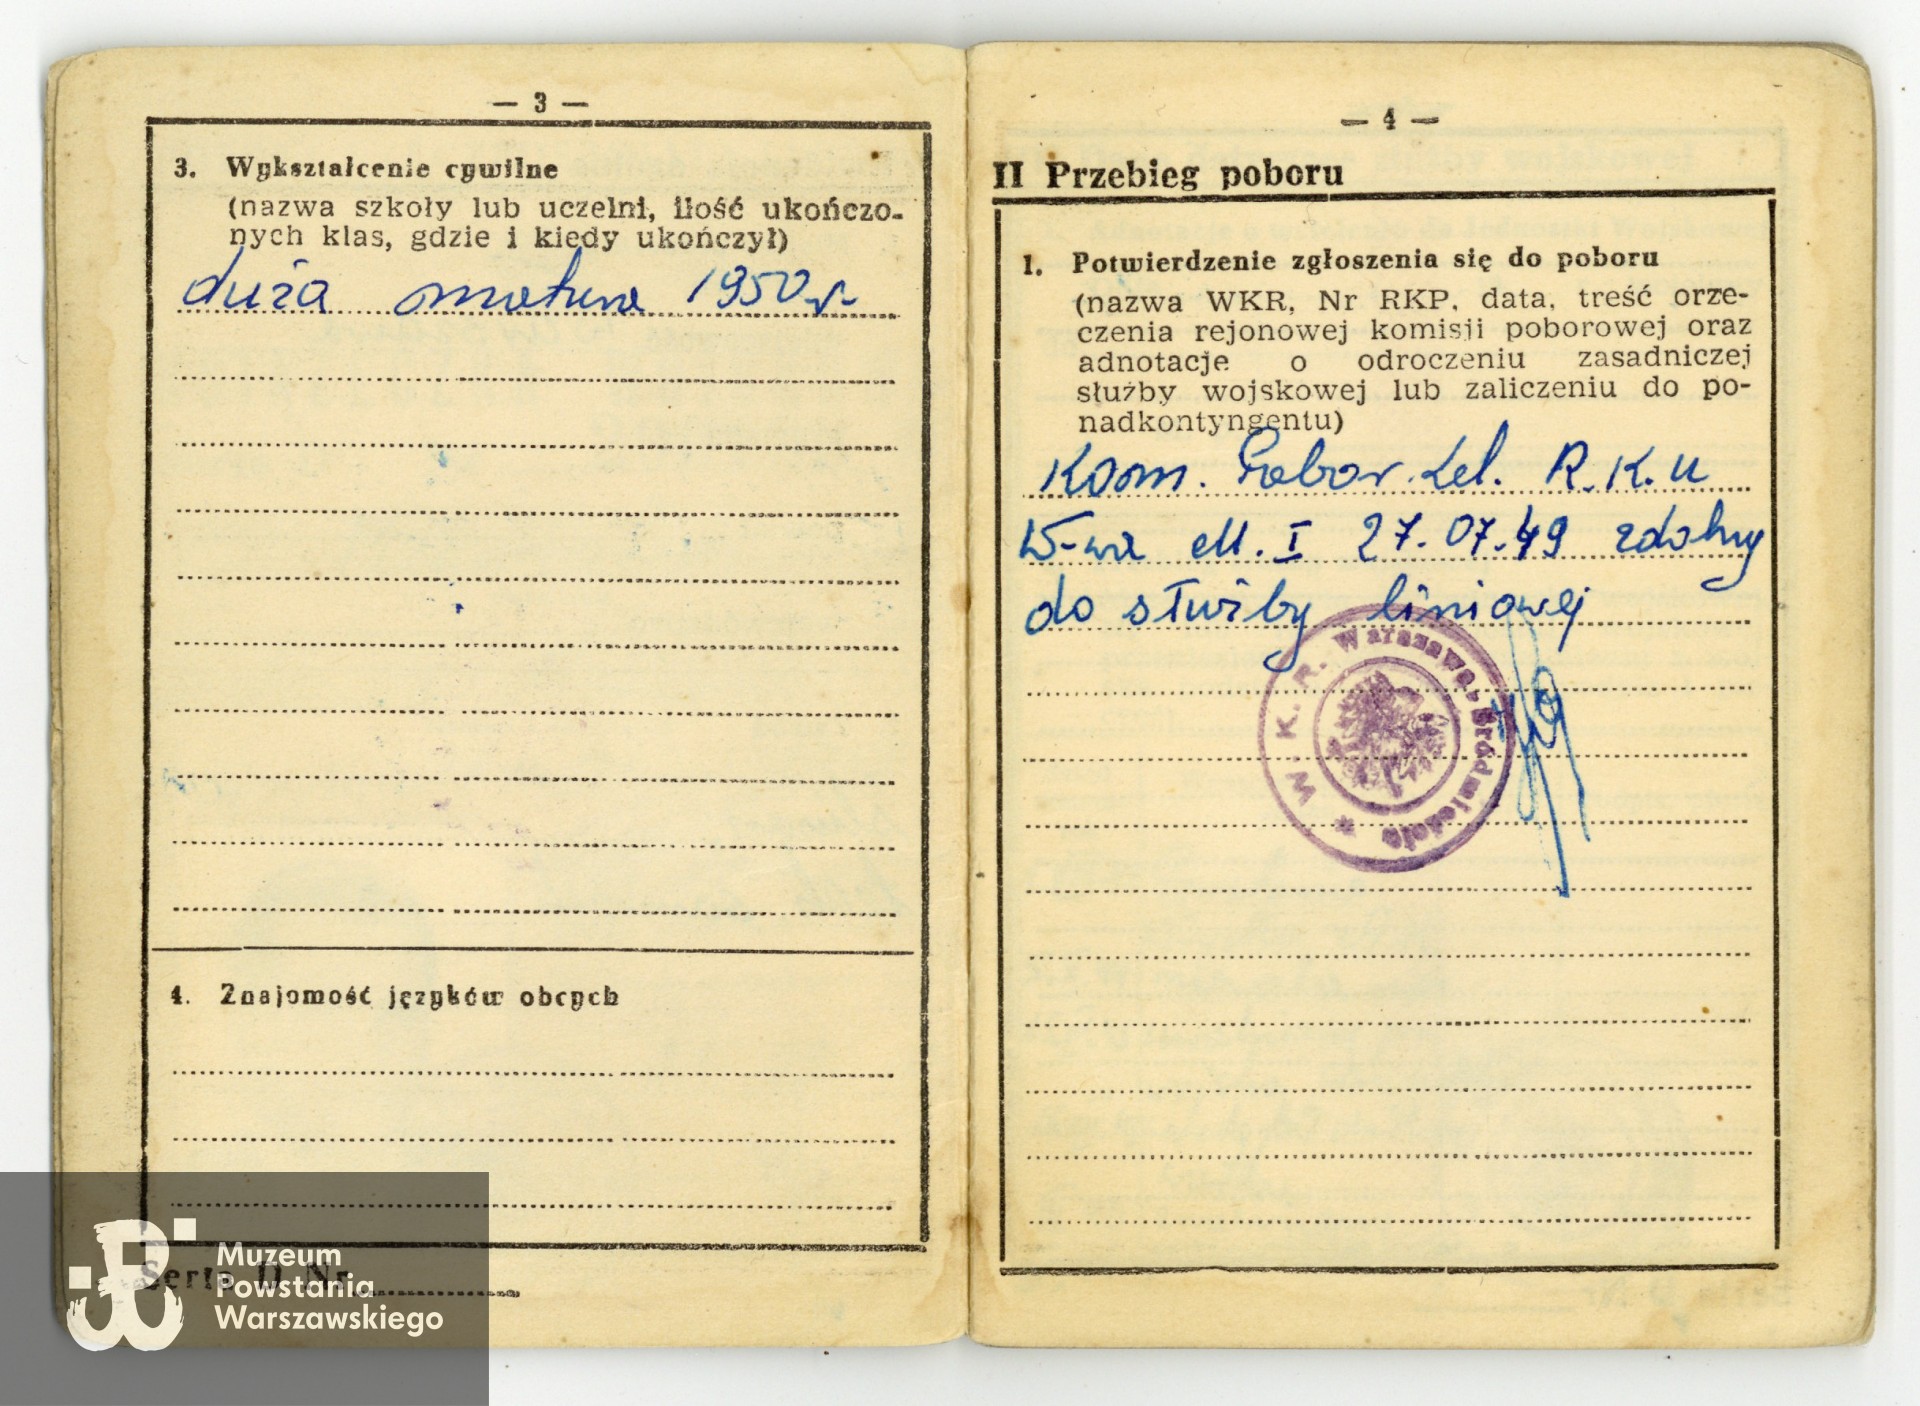 — 3 —
3. Wykształcenie cywilne
(nazwa szkoły lub uczelni, ilość ukończo-
nych klas, gdzie i kiedy ukończył)
duża matura 1950 r.
4. Znajomość języków obcych
Seria D Nr
Muzeum
Powstania
Warszawskiego
— 4 —
II Przebieg poboru
1. Potwierdzenie zgłoszenia się do poboru
(nazwa WKR, Nr RKP, data, treść orze-
czenia rejonowej komisji poborowej oraz
adnotacje o odroczeniu zasadniczej
służby wojskowej lub zaliczeniu do po-
nadkontyngentu)
Kom. Pobor. Lek. R.K.U
W-wa M. I 27.07.49 zdolny
do służby liniowej
W. K. R. Warszawa-Śródmieście *